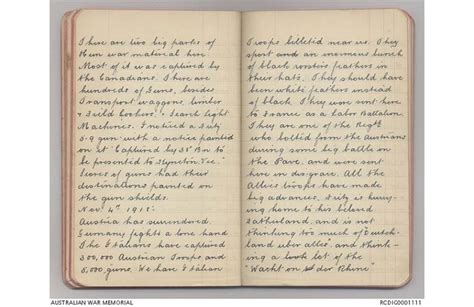 There are two big parks of
Hun war material here.
Most of it was captured by
the Canadians. There are
hundreds of Guns, besides
Transport waggons, limber
& Field Cookers & Search light
Machines. I noticed a
5.9 gun with a notice painted
on it "Captured by 38th Bn to
be presented to Kyneton Vic."
Scores of guns had their
destinations painted on
the gun shields.
Nov. 4th 191
Austria has surrendered.
Germany fights a lone hand
The Italians have captured
300,000 Austrian Troops and
5,000 guns. We have Italian
Troops billetid near us. They
sport and an enormous bunch
of black roosters feathers in
their hats. They should have
been white feathers instead
of black. They were sent here
to France as a Labor Battalion.
They are one of the Regts
who bolted from the Austrians
during some big battle on
the Pave, and were sent
here in disgrace. All the
Allies troops have made
big advances. Fritz is hurry-
ing home to his beloved
Fatherland, and is not
thinking too much of "Deutch-
land uber alles" and think-
ing a look lot of the
"Wacht on der Rhine"
AUSTRALIAN WAR MEMORIAL
RCDIG0001111